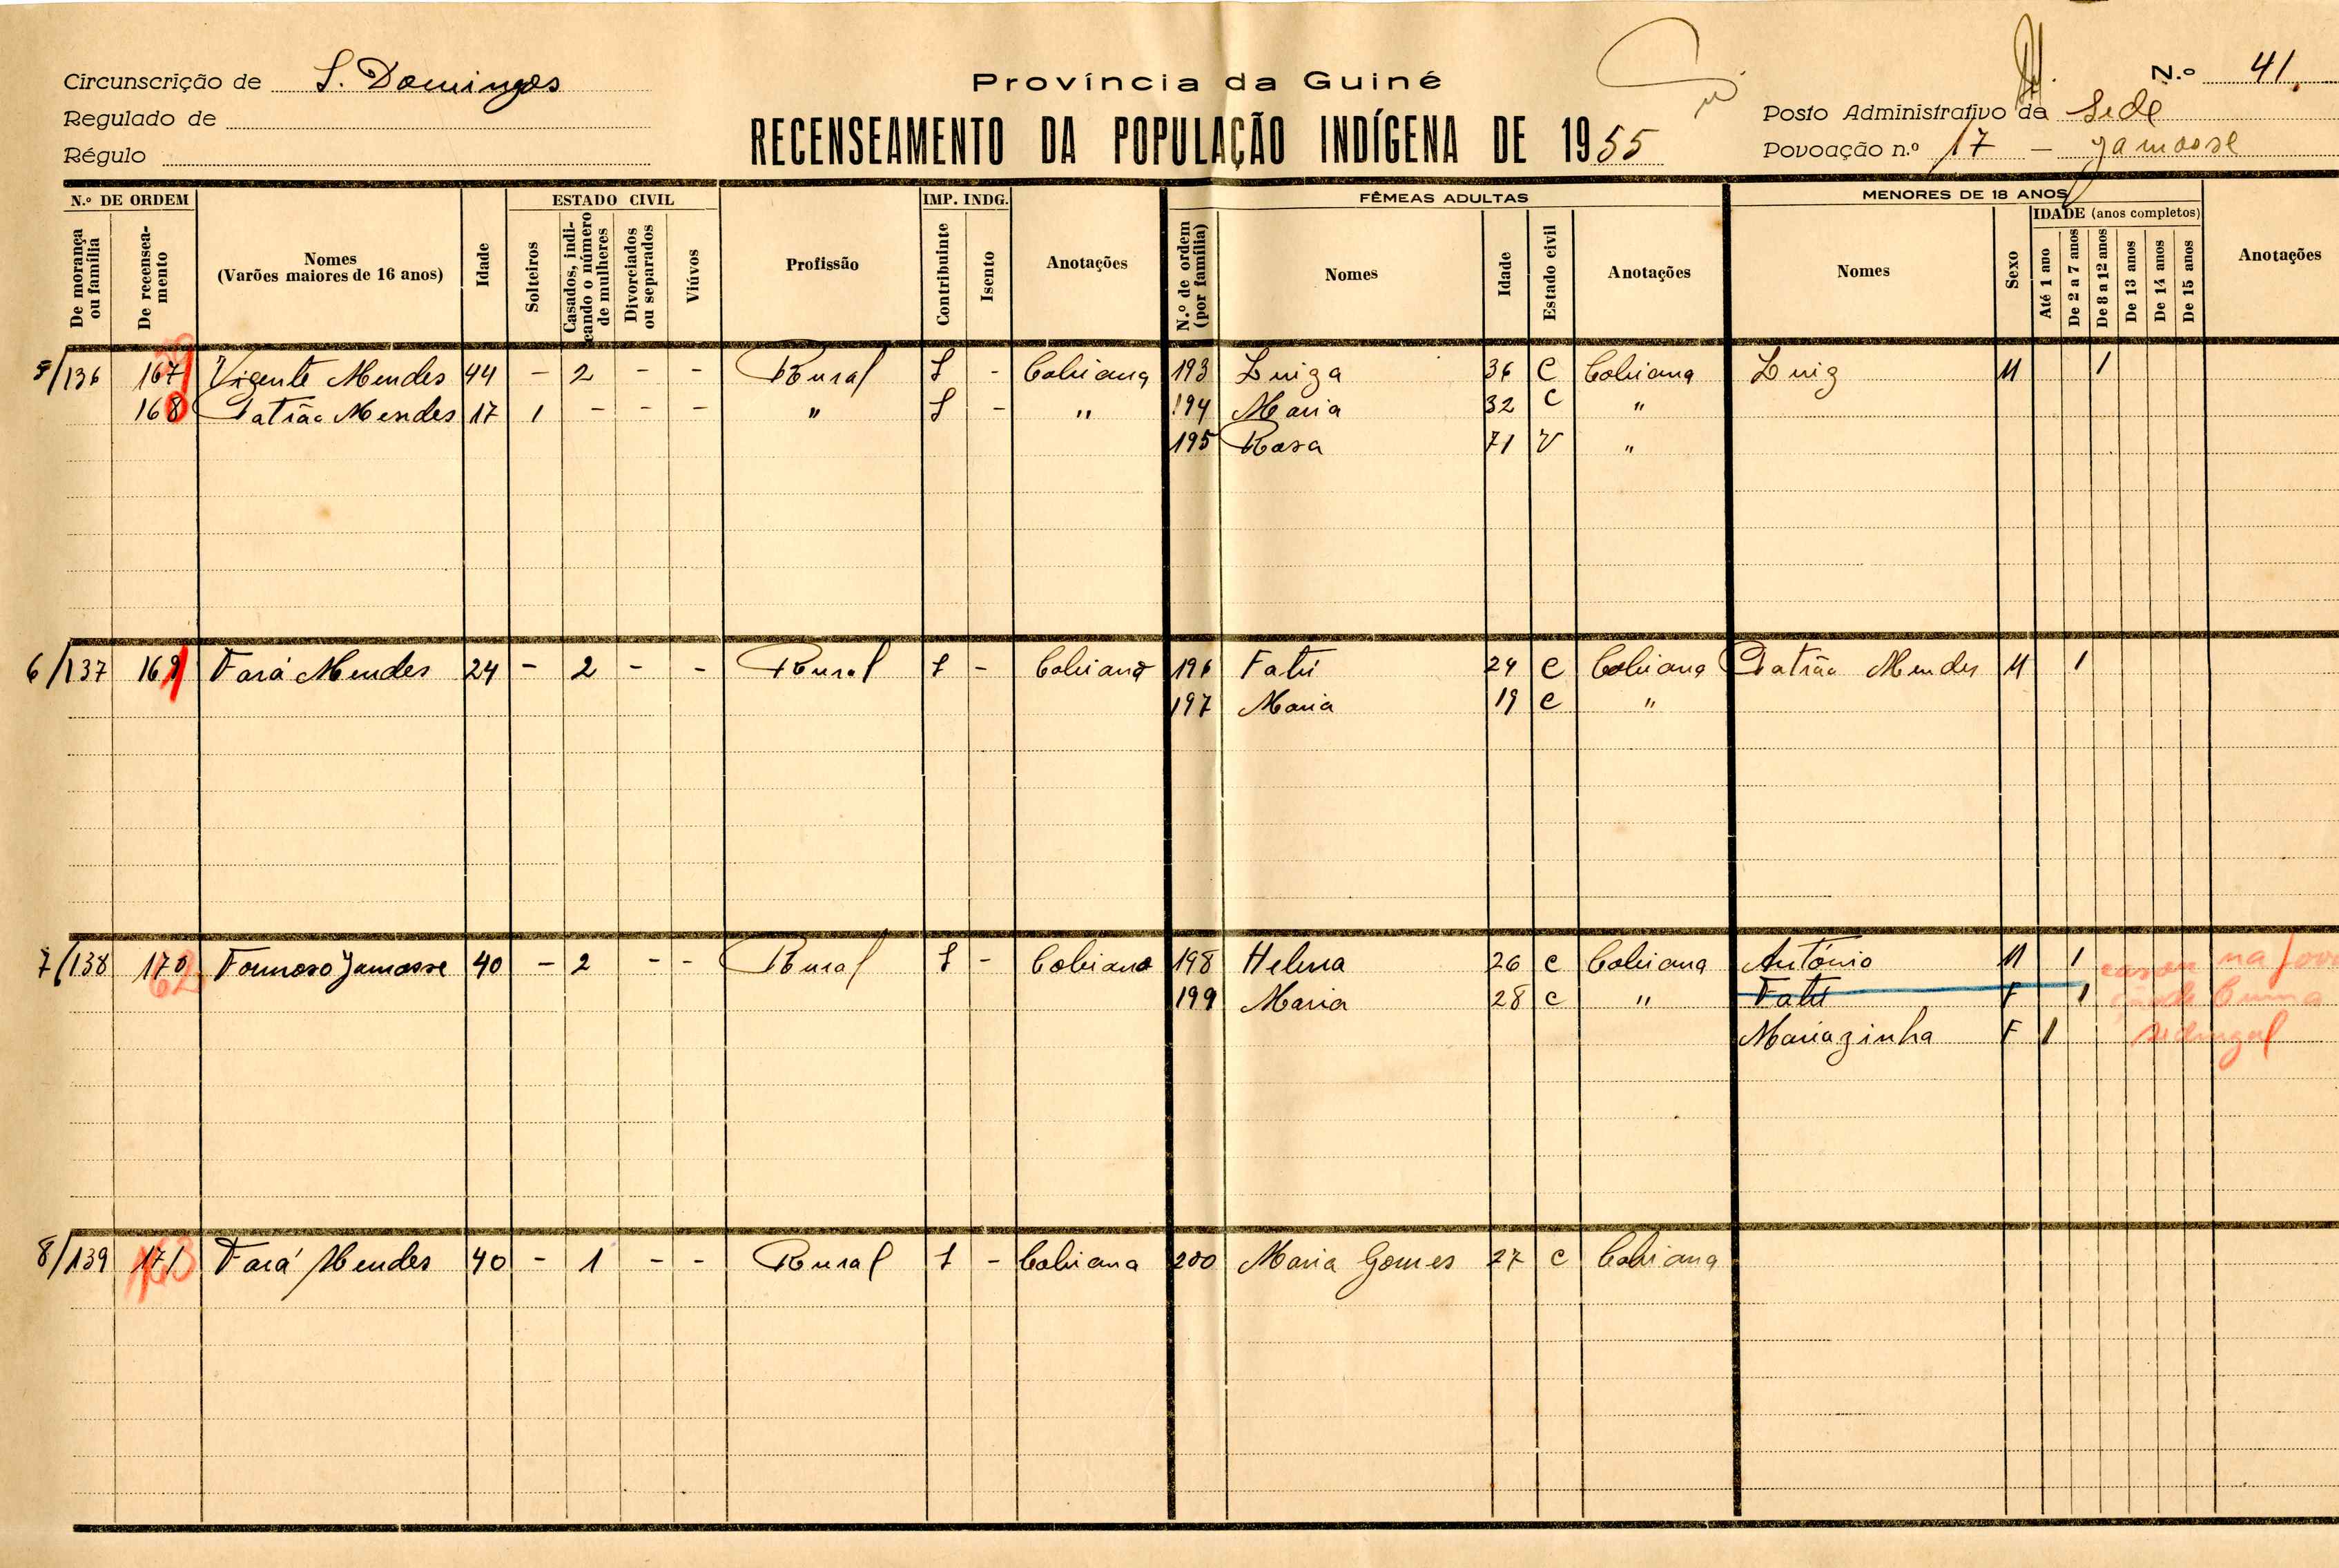 Circunscrição de S. Domingos
Regulado de
Régulo
Província da Guiné
RECENSEAMENTO DA POPULAÇÃO INDÍGENA DE 1955
N.º 41
Posto Administrativo da Sede
Povoação n.º 17 - Jamasse
N.º DE ORDEM
De morança ou família
De recenseamento
Nomes
(Varões maiores de 16 anos)
Idade
ESTADO CIVIL
Solteiros
Casados, indicando o número de mulheres
Divorciados ou separados
Viúvos
Profissão
IMP. INDG.
Contribuinte
Isento
Anotações
FÊMEAS ADULTAS
N.º de ordem (por família)
Nomes
Idade
Estado civil
Anotações
MENORES DE 18 ANOS
Nomes
Sexo
IDADE (anos completos)
Até 1 ano
De 2 a 7 anos
De 8 a 12 anos
De 13 anos
De 14 anos
De 15 anos
Anotações
5/136 167 Vicente Mendes 44 - 2 - - Rural 1 - Cobiana 193 Luiza 36 C Cobiana Luiz M 1
168 Patrão Mendes 17 1 - - - " 1 - " 194 Maria 32 C "
195 Rosa 71 V "
6/137 169 Fará Mendes 24 - 2 - - Rural 1 - Cobiana 196 Fatú 24 C Cobiana Patrão Mendes M 1
197 Maria 19 C "
7/138 170 62 Formoso Jamasse 40 - 2 - - Rural 1 - Cobiana 198 Helena 26 C Cobiana António M 1 casou na
199 Maria 28 C " Fatú F 1
Mariazinha F 1
8/139 171 163 Fará Mendes 40 - 1 - - Rural 1 - Cobiana 200 Maria Gomes 27 C Cobiana